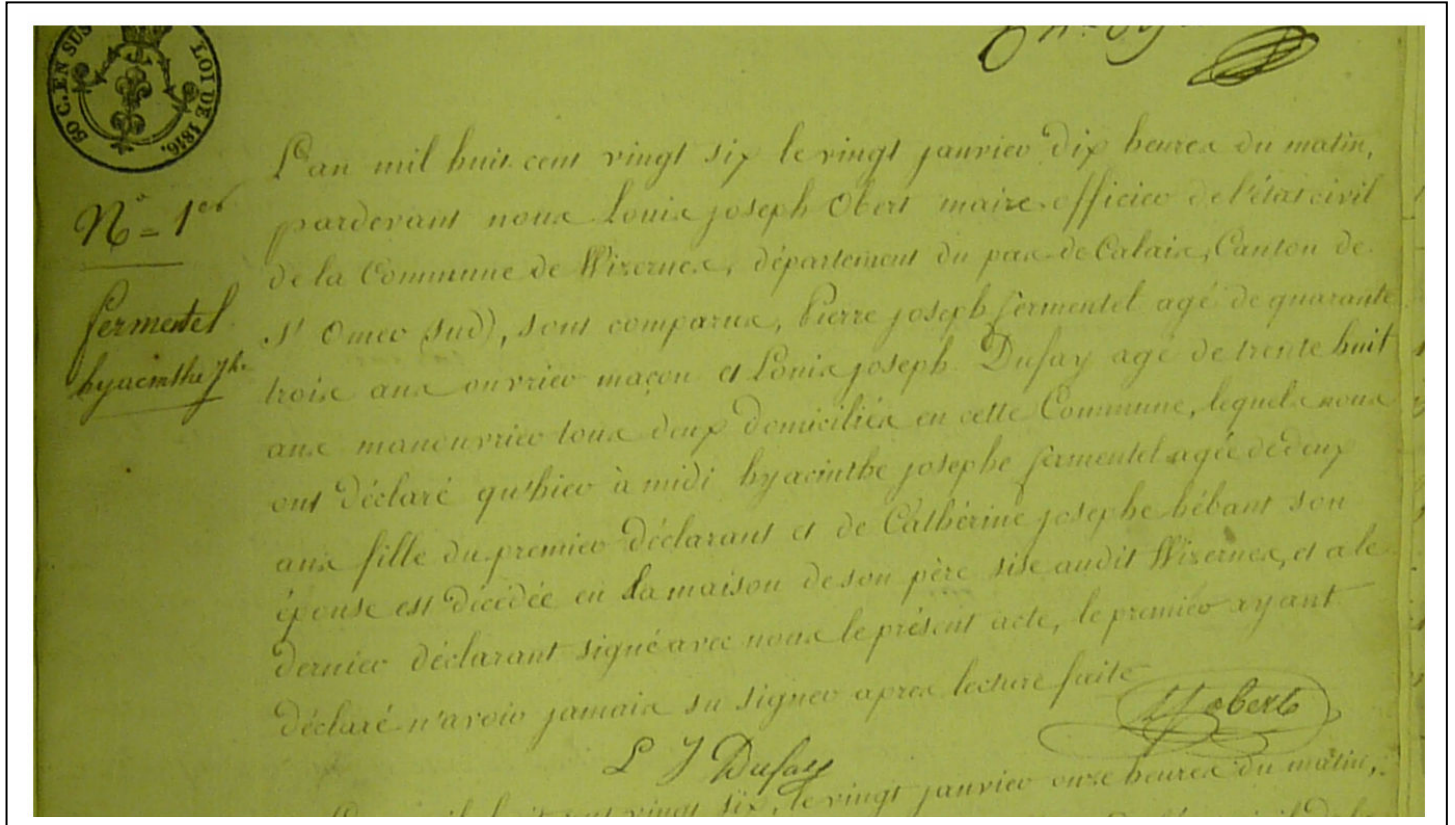 50 C. EN SUS
LOI DE 1816.
L'an mil huit cent vingt six le vingt janvier dix heures du matin,
N° = 1er
pardevant nous Louis joseph Obert maire officier de l'état civil
de la Commune de Wizernes, département du pas-de-Calais, Canton de
fermentel
hyacinthe jhe
St Omer (sud), sont comparus, Pierre joseph fermentel agé de quarante
trois ans ouvrier maçon et Louis joseph Dufay agé de trente huit
ans manouvrier tous deux domiciliés en cette Commune, lequels nous
ont déclaré qu'hier à midi hyacinthe josephe fermentel agée de deux
ans fille du premier déclarant et de Cathérine josephe hébant son
épouse est décédée en sa maison de son père sise audit Wizernes, et a le
dernier déclarant signé avec nous le présent acte, le premier ayant
déclaré n'avoir jamais su signer apres lecture faite
L J Dufay
LJ obert
vingt six, le vingt janvier onze heures du matin,